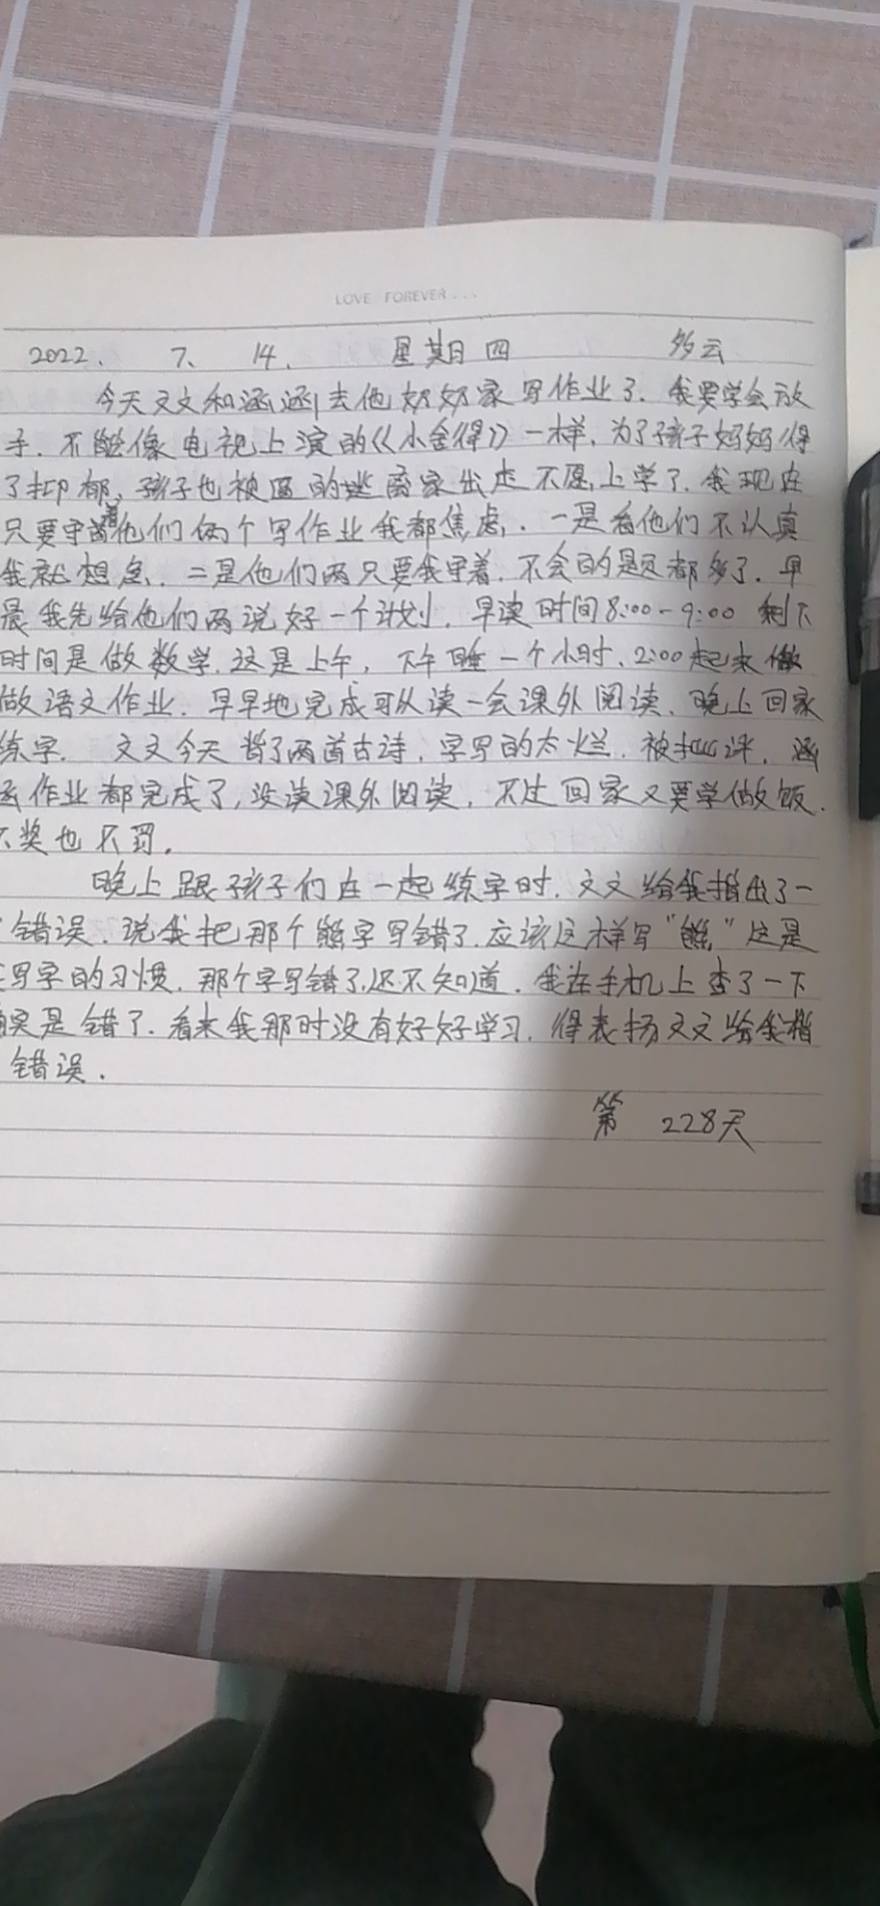 LOVE FOREVER...
2022. 7、 14. 星期四 多云
今天文文和涵涵去他奶奶家写作业了.我要学会放
手.不能像电视上演的《小舍得》一样,为了孩子妈妈得
了抑郁,孩子也被逼的离家出走不愿上学了.我现在
只要守着他们俩个写作业我都焦虑.一是看他们不认真
我就想急.二是他们两只要我守着.不会的题都多了.早
晨我先给他们两说好一个计划.早读时间8:00-9:00 剩下
时间是做数学.这是上午,下午睡一个小时、2:00起来做
做语文作业.早早地完成可以读一会课外阅读、晚上回家
练字. 文文今天背了两首古诗,字写的太烂.被批评.涵
作业都完成了,没读课外阅读,不过回家又要学做饭.
不奖也不罚。
晚上跟孩子们在一起练字时.文文给我指出了一
错误.说我把那个熊字写错了.应该这样写"熊"这是
写字的习惯.那个字写错了,还不知道.我在手机上查了一下
是错了.看来我那时没有好好学习.得表扬文文给我指
错误.
第 228天